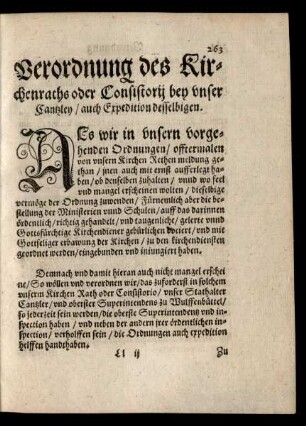 263
Verordnung des Kir-
chenraths oder Consistorij bey vnser
Cantzley / auch Expedition desselbigen.
Es wir in vnsern vorge-
henden Ordnungen / offtermalen
von vnsern Kirchen Rethen meldung ge-
than / jnen auch mit ernst aufferlegt ha-
ben / ob denselben zuhalten / vnnd wo feel
vnd mangel erscheinen wolten / dieselbige
vermöge der Ordnung zuwenden / Fürnemlich aber die be-
stellung der Ministerien vnnd Schulen / auff das darinnen
ördentlich / richtig gehandelt / vnd taugenliche / gelerte vnnd
Gottsfürchtige Kirchendiener gebürlichen vociert / vnd mit
Gottseliger erbawung der Kirchen / zu den kirchendiensten
geordnet werden / eingebunden vnd iniungiert haben.
Demnach vnd damit hieran auch nicht mangel erschei-
ne / So wöllen vnd verordnen wir / das zuforderst in solchem
vnserm Kirchen Rath oder Consistorio / vnser Stathalter
Cantzler / vnd oberster Superintendens zu Wulffenbüttel /
so jederzeit sein werden / die oberste Superintendentz vnd in-
spection haben / vnd neben der andern jrer ördentlichen in-
spection / verholffen sein / die Ordnungen auch expedition
helffen handthaben.
Ll ij
Zu